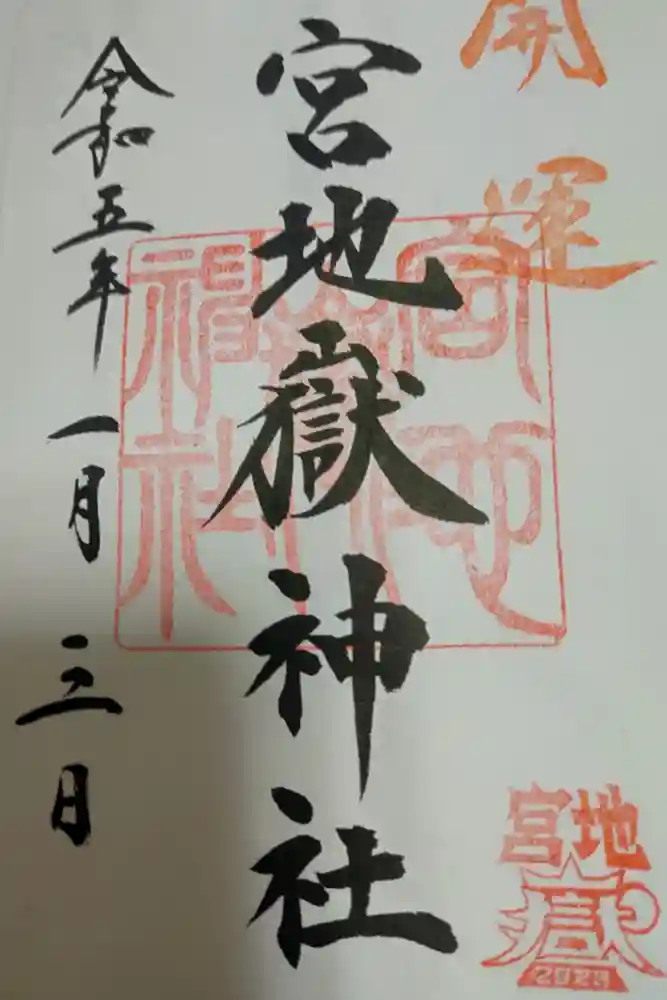 開運
宮地嶽神社
令和五年一月三日
宮地
嶽
2023